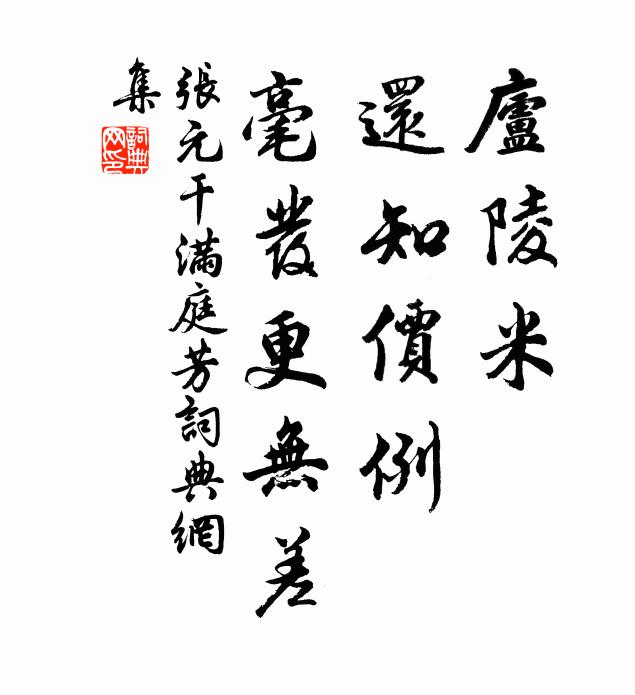 廬陵米
還知價例
毫發更無差
張元干滿庭芳詞典網
集
詞典
网印